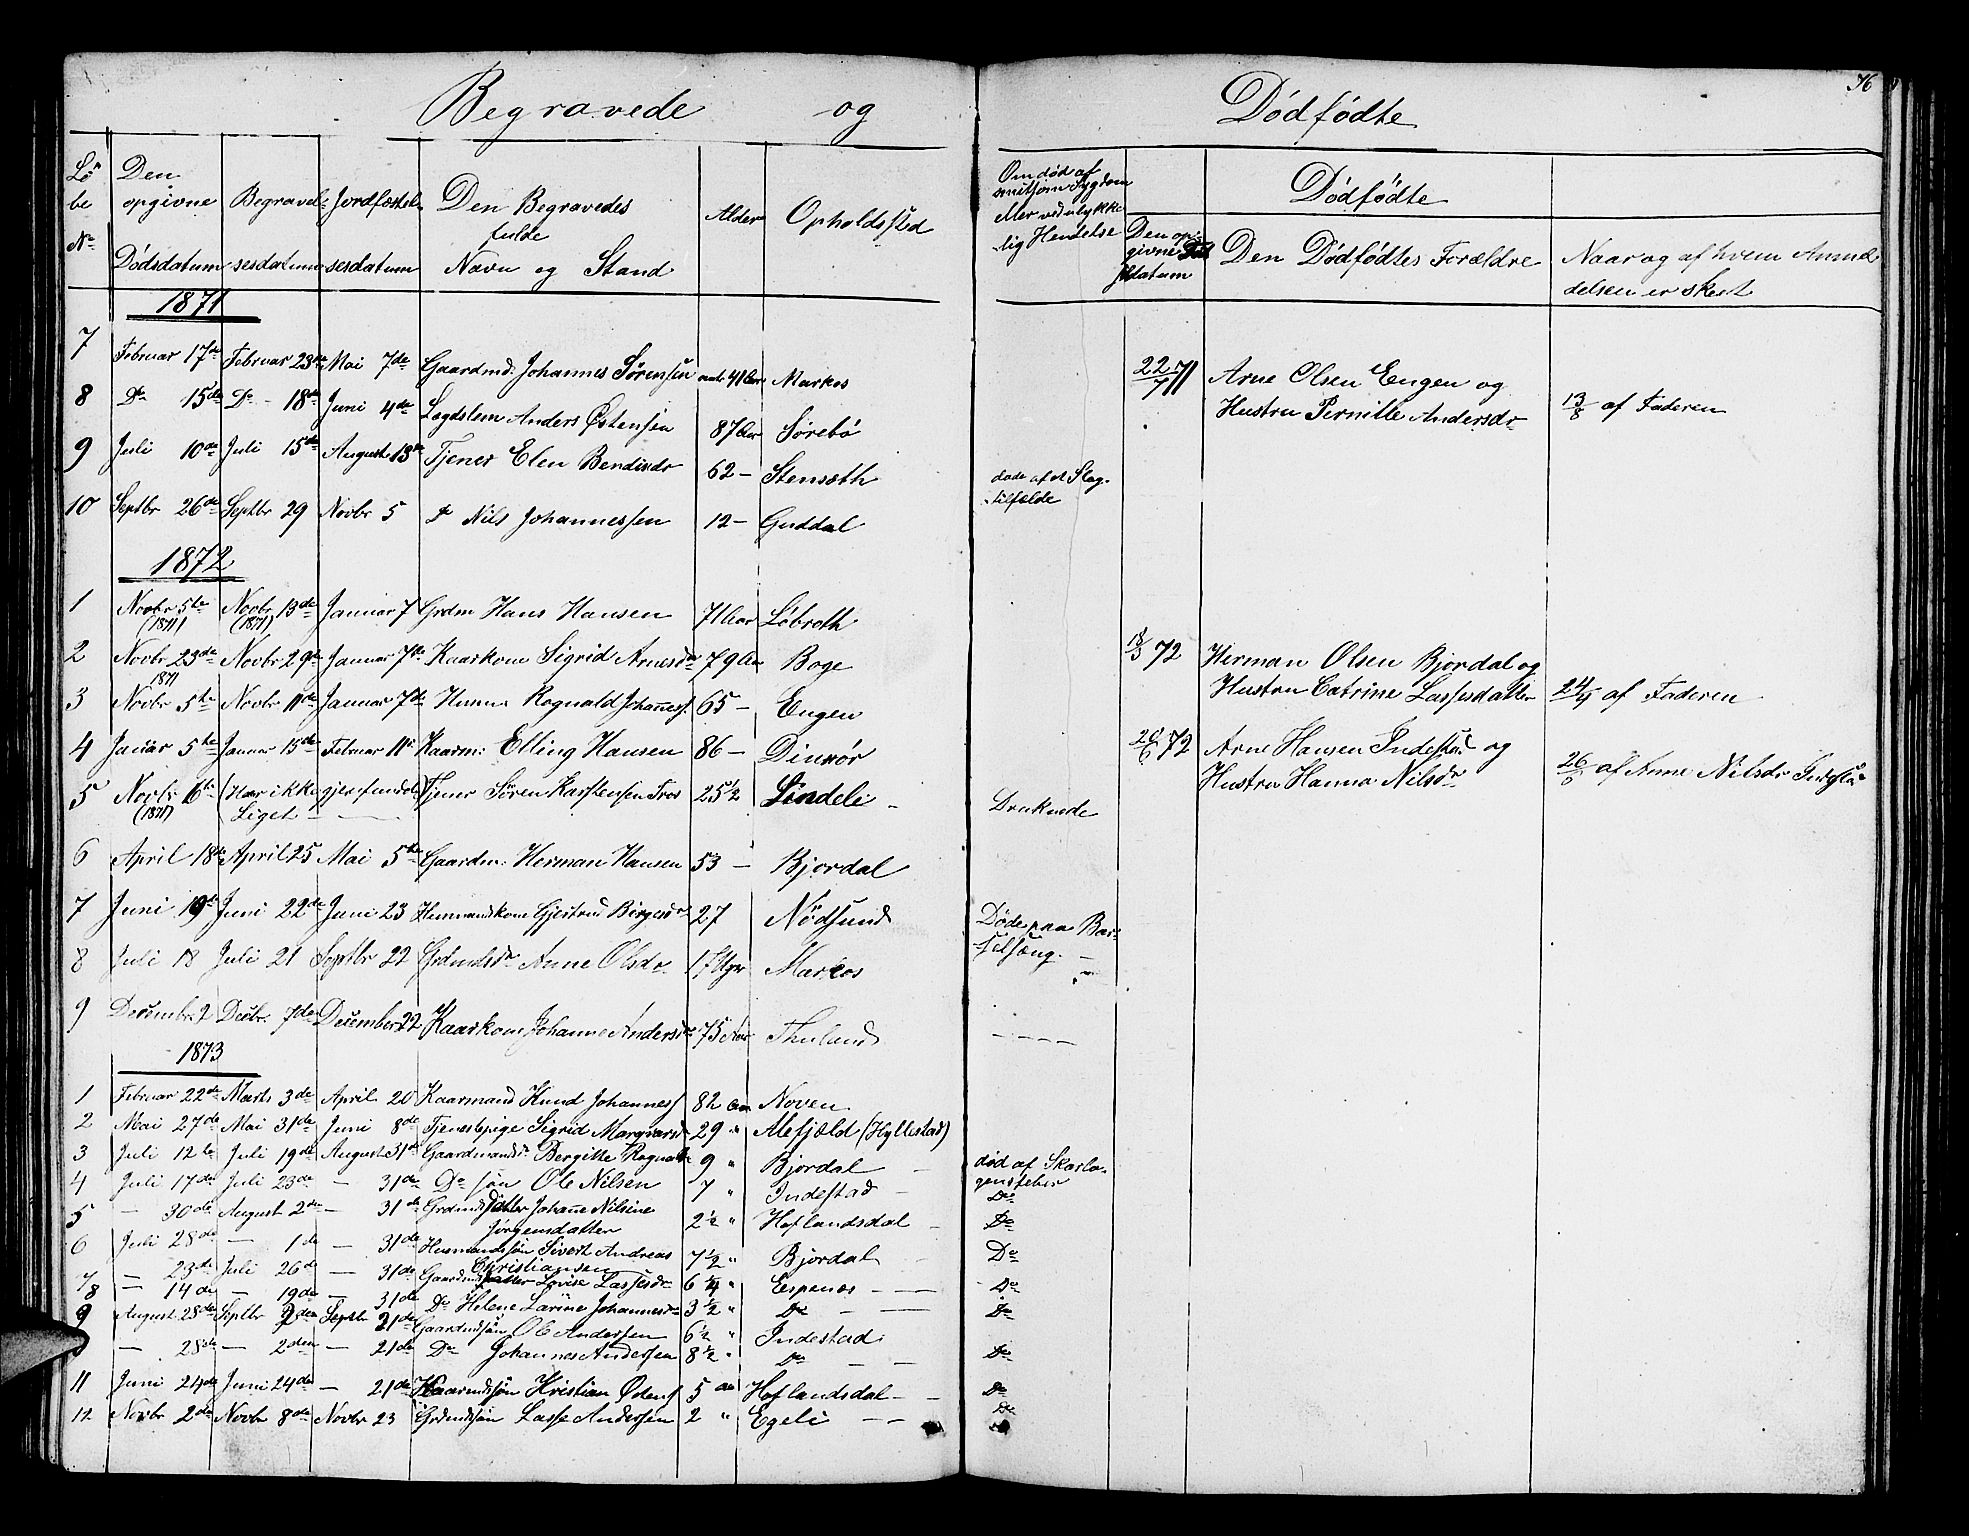 76
Begravede og Dødfødte
Løbe No | Den opgivne Dødsdatum | Begravelsesdatum | Jordfæstelsesdatum | Den Begravedes fulde Navn og Stand | Alder | Opholdssted | Om død af smitsom Sygdom eller ved ulykkelig Hendelse | Dødfødte
Den opgivne datum | Den Dødfødtes Forældre | Naar og af hvem Anmeldelsen er skeet
1871
7 Februar 17de Februar 23 Mai 7de Gaardmd. Johannes Sörensen 41 Aar Markos
22/7 71 Arne Olsen Engen og
Hustru Pernille Andersdr 13/8 af Faderen
8 Do 15de Do 18de Juni 4de Lægdslem Anders Østensen 87 Aar Sørebø
9 Juli 10de Juli 15de August 13de Tjener Elen Bendixdr 62 — Stensæth døde af et Slag-
tilfælde
10 Septbr 26de Septbr 29 Novbr 5 Nils Johannessen 12 — Guddal
1872
1 Novbr 5te (1871) Novbr. 13de (1871) Januar 7 Grdm Hans Hansen 71 Aar Löbroth
2 Novbr 23de 1871 Novbr 29de Januar 7de Kaarkone Sigrid Arnesdr 79 Aar Boge
18/3 72 Herman Olsen Bjordal og
Hustru Catrine Lassesdatter 24/4 af Faderen
3 Novbr 5te Novbr 11te Januar 7de Rognald Johanness. 65 — Engen
4 Januar 5te Januar 15de Februar 11te Kaarm: Elling Hansen 86 — Dinnör
72 Arne Hansen Indestad og
Hustru Hanna Nilsdr 26/6 af Anne Nilsdr Indestad
5 Novbr. 6te (1871) (Har ikke gjenfundet Tjener Sören Karstensen Tros 25 1/2 Lindeli — Druknede
Liget —
6 April 18de April 25 Mai 5te Gaardm: Herman Hansen 53 — Bjordal
7 Juni 19de Juni 22de Juni 23 Husmandskone Gjertrud Birgesdr 27 Nödsund Döde paa Bar-
selsæng. —
8 Juli 18 Juli 21 Septbr 22 Grdmdsdr Anne Olsdr 17 Uger Markos "
9 Decembr. 2 Decbr. 7de December 22 Kaarkone Johanne Andersdr 75 Aar Thuland - - - -
1873
1 Februar 22de Marts 3de April 20 Kaarmand Knud Johanness 82 Aar Noven
2 Mai 27de Mai 31de Juni 8de Tjenestpige Sigrid Margvarsdr 29 " Alefjæld (Hyllestad)
3 Juli 12te Juli 19de August 31de Gaardmandsdr. Bergitte Rognaldr 9 " Bjordal — död af Skarla-
gensfeber
4 Juli 17de Juli 23de — 31de Do søn Ole Nilsen 7 " Indestad — Do
5 — 30de August 2de — 31de Grdmdsdatter Johane Nilsine
Jørgensdatter 2 1/2 " Heflandsdal — Do
6 Juli 28de — 1de — 31de Husmandssøn Sivert Andreas
Christiansen 7 1/2 " Bjordal Do
7 — 23de Juli 26de — 31de Gaardmdsdatter Lovise Lassesdr 6 1/4 " Espenæs — — Do
8 — 14de — 19de — 31de Do Helene Larine Johannesdr 3 1/2 " Do — — Do
9 August 28de Septbr 2den Septbr 21de Gaardmdssön Ole Andersen 6 1/2 " Indestad
— 28de — 2den — 21de Do Johannes Andersen 8 1/2 " Do — — Do
11 Juni 24de Juni 24de — 21de Kaarmdssøn Kristian Ødens 5 aar Heflandsdal — — Do
12 Novbr 2de Novbr 8de Novbr 23 Grdmdssøn Lasse Andersen 2 " Egeli — — Do